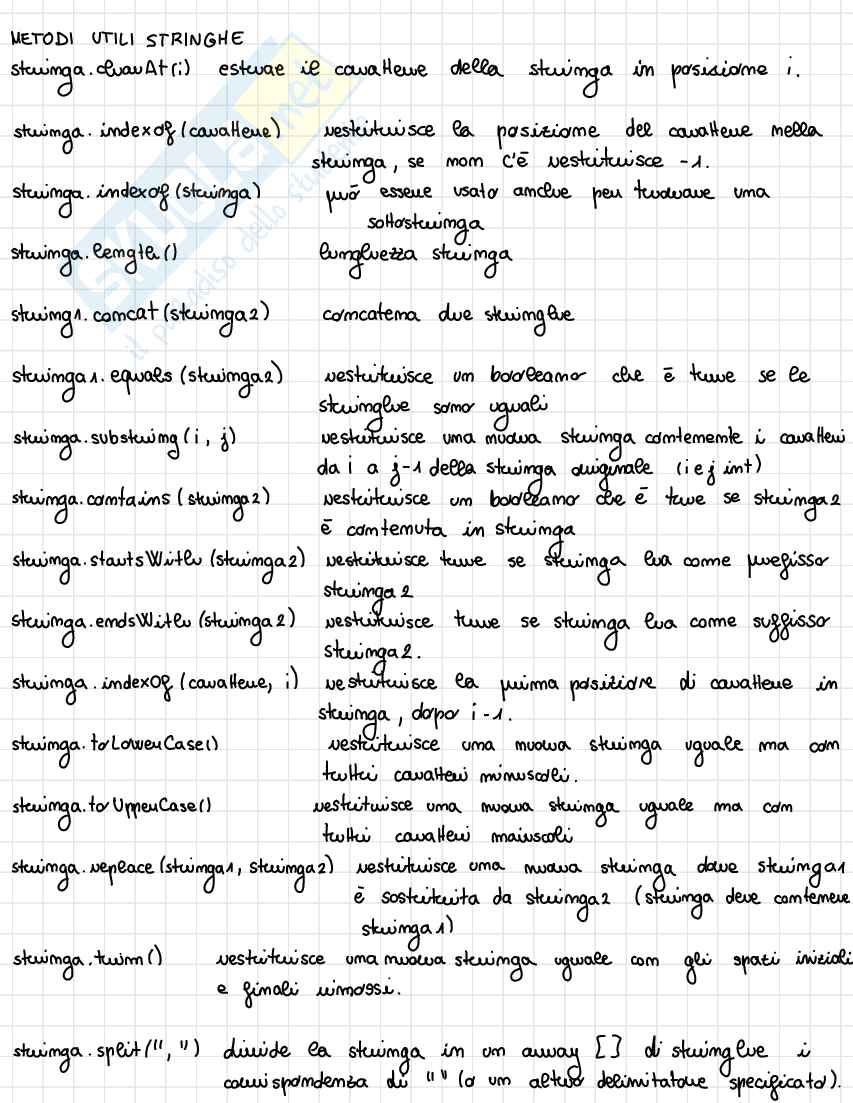 METODI UTILI STRINGHE
stringa.charAt(i) estrae il carattere della stringa in posizione i.
stringa.indexOf(carattere) restituisce la posizione del carattere nella
stringa, se non c'è restituisce -1.
stringa.indexOf(stringa) può essere usato anche per trovare una
sottostringa
stringa.length() lunghezza stringa
string1.concat(stringa2) concatena due stringhe
stringa1.equals(stringa2) restituisce un booleano che è true se le
stringhe sono uguali
stringa.substring(i, j) restituisce una nuova stringa contenente i caratteri
da i a j-1 della stringa originale (i e j int)
stringa.contains(stringa2) restituisce un booleano che è true se stringa2
è contenuta in stringa
stringa.startsWith(stringa2) restituisce true se stringa ha come prefisso
stringa2
stringa.endsWith(stringa2) restituisce true se stringa ha come suffisso
stringa2.
stringa.indexOf(carattere, i) restituisce la prima posizione di carattere in
stringa, dopo i-1.
stringa.toLowerCase() restituisce una nuova stringa uguale ma con
tutti caratteri minuscoli.
stringa.toUpperCase() restituisce una nuova stringa uguale ma con
tutti caratteri maiuscoli
stringa.replace(stringa1, stringa2) restituisce una nuova stringa dove stringa1
è sostituita da stringa2 (stringa deve contenere
stringa1)
stringa.trim() restituisce una nuova stringa uguale con gli spazi iniziali
e finali rimossi.
stringa.split(",") divide la stringa in un array [] di stringhe i
corrispondenza di "" (o un altro delimitatore specificato).
SKUOLA.net
il paradiso dello studente